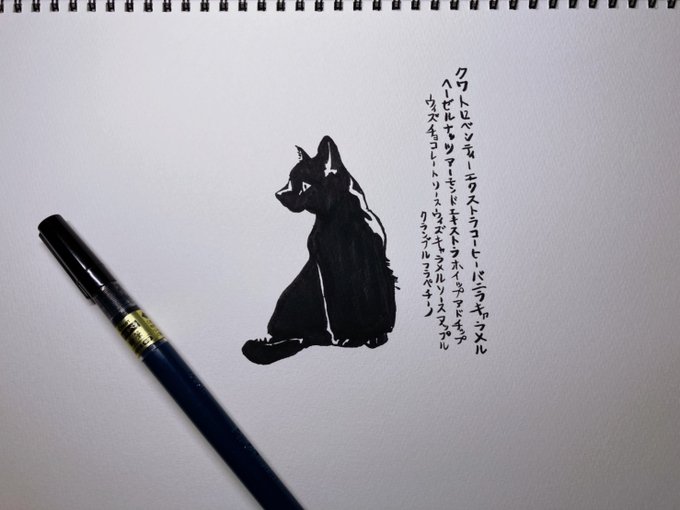 クワトロベンティーエクストラコーヒーバニラキャラメル
ヘーゼルナッツアーモンドエキストラホイップアドチップ
ウィズチョコレートソースウィズキャラメルソースアップル
クランブルフラペチーノ